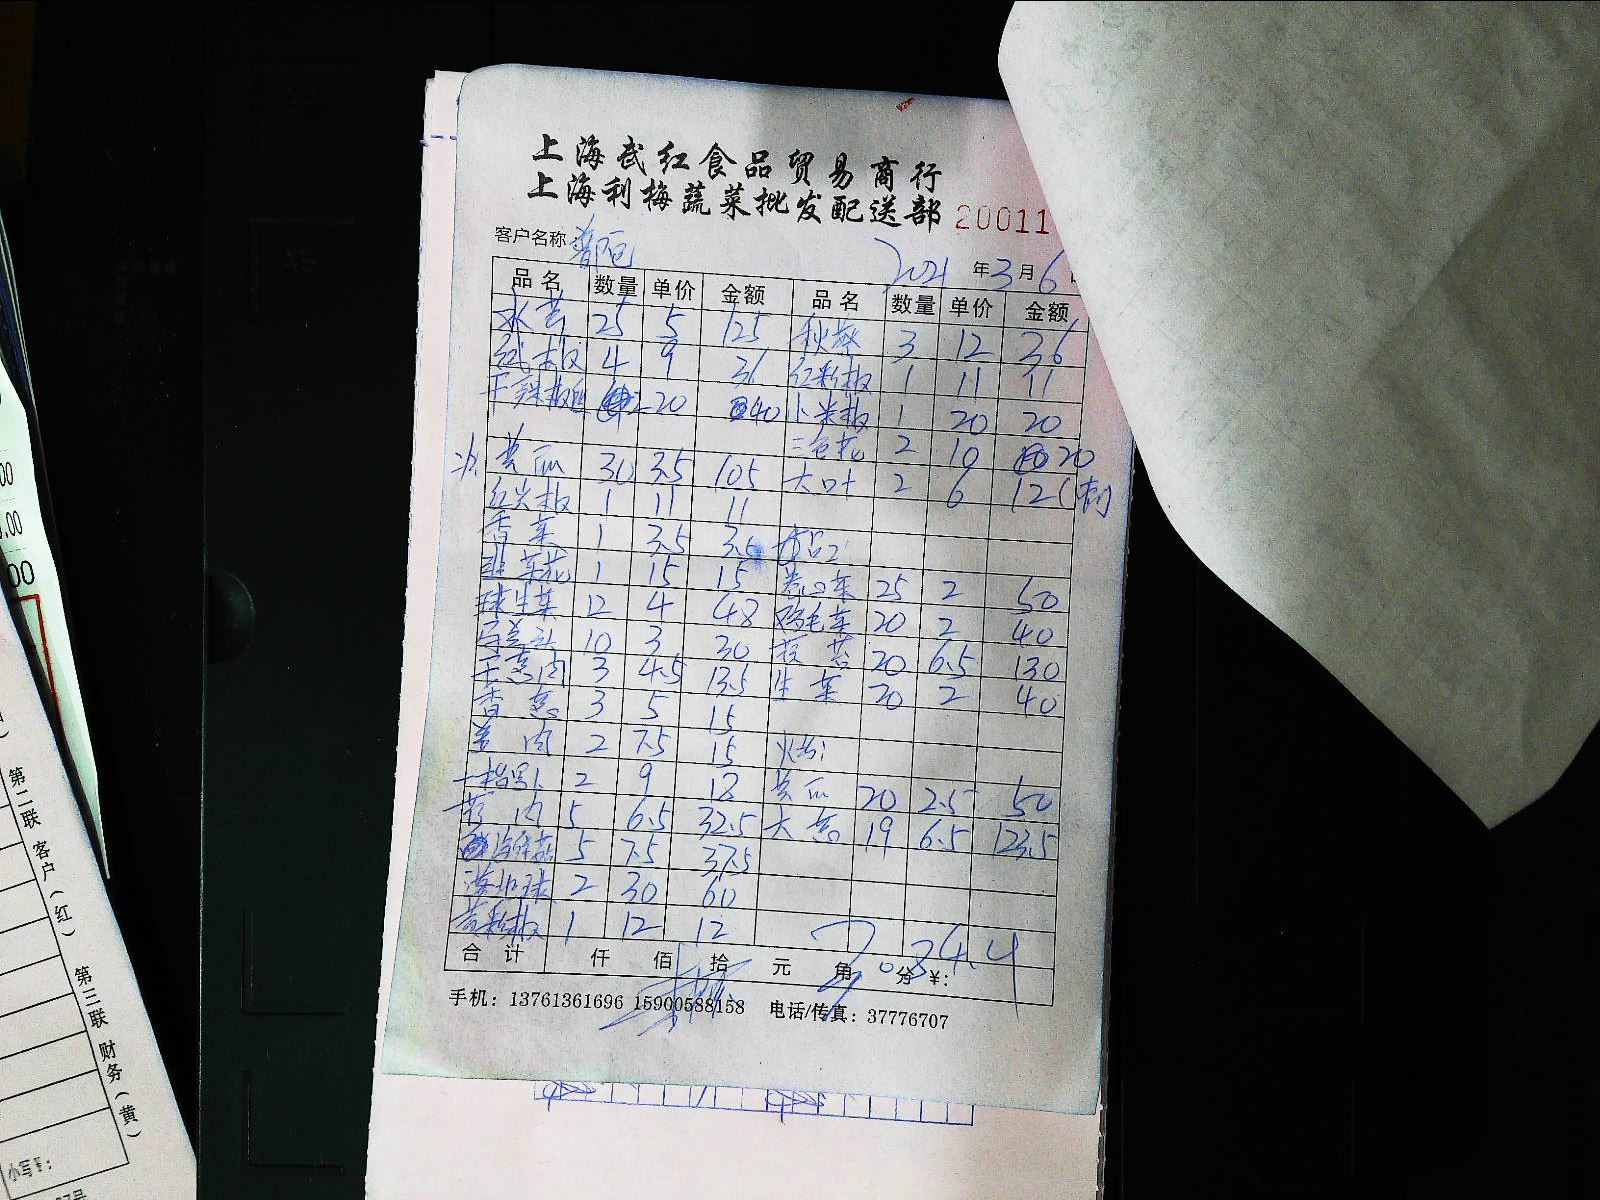 上海武红食品贸易商行
上海利梅蔬菜批发配送部 20011
客户名称: 2021年3月6
品名 数量 单价 金额 品名 数量 单价 金额
水芹 25 5 125 秋葵 3 12 36
4 9 36 红彩椒 1 11 11
干辣椒 2 20 40 小米椒 1 20 20
三色花 2 10 20
黄瓜 30 3.5 105 大叶 2 6 12
红尖椒 1 11 11
香菜 1 3.5 3.5
韭菜花 1 15 15 卷心菜 25 2 50
球生菜 12 4 48 鸡毛菜 20 2 40
10 3 30 20 6.5 130
干葱肉 3 4.5 13.5 生菜 20 2 40
香葱 3 5 15
姜肉 2 7.5 15
2 9 18 黄瓜 20 2.5 50
蒜肉 5 6.5 32.5 大葱 19 6.5 123.5
海鲜菇 5 7.5 37.5
2 30 60
黄彩椒 1 12 12
合计 仟 佰 拾 元 角 分 ¥:
手机: 13761361696 15900588158 电话/传真: 37776707
00
.00
00
第二联 客户(红)
第三联 财务(黄)
小写¥: